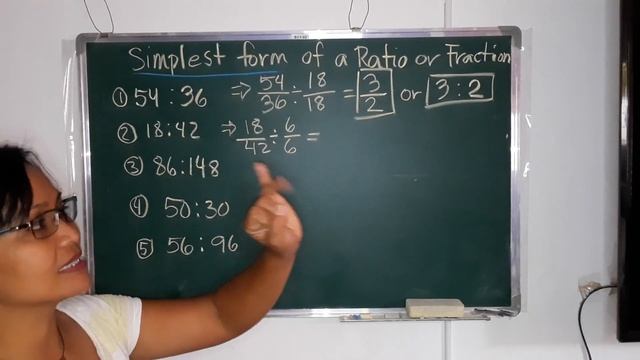 Simplest form of a Ratio or Fraction
① 54 : 36 ⇒ 54/36 ÷ 18/18 = 3/2 or 3 : 2
② 18 : 42 ⇒ 18/42 ÷ 6/6 =
③ 86 : 148
④ 50 : 30
⑤ 56 : 96